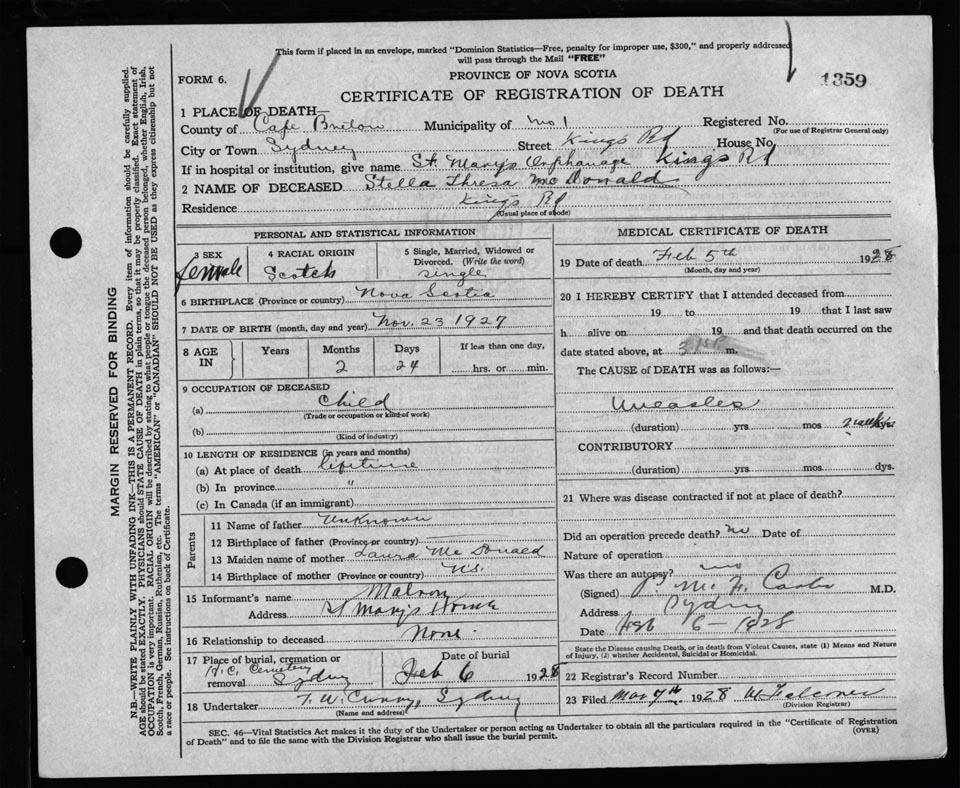 This form if placed in an envelope, marked "Dominion Statistics—Free, penalty for improper use, $300," and properly addressed
will pass through the Mail "FREE"
FORM 6.
PROVINCE OF NOVA SCOTIA
1359
CERTIFICATE OF REGISTRATION OF DEATH
1 PLACE OF DEATH—
County of Cape Breton Municipality of No 1 Registered No.
(For use of Registrar General only)
City or Town Sydney Street Kings Rd House No
If in hospital or institution, give name St. Mary's Orphanage Kings Rd
2 NAME OF DECEASED Stella Thresa McDonald
Residence Kings Rd
(Usual place of abode)
PERSONAL AND STATISTICAL INFORMATION
3 SEX 4 RACIAL ORIGIN 5 Single, Married, Widowed or Divorced. (Write the word)
Female Scotch Single
6 BIRTHPLACE (Province or country) Nova Scotia
7 DATE OF BIRTH (month, day and year) Nov. 23 1927
8 AGE IN Years Months Days If less than one day,
2 24 hrs. or min.
9 OCCUPATION OF DECEASED
(a) Child
(Trade or occupation or kind of work)
(b)
(Kind of industry)
10 LENGTH OF RESIDENCE (in years and months)
(a) At place of death lifetime
(b) In province "
(c) In Canada (if an immigrant)
Parents
11 Name of father Unknown
12 Birthplace of father (Province or country)
13 Maiden name of mother Laura McDonald
14 Birthplace of mother (Province or country) N.S.
15 Informant's name Matron
Address St Mary's Home
16 Relationship to deceased None.
17 Place of burial, cremation or removal R.C. Cemetery Sydney
Date of burial Feb 6 1928
18 Undertaker F. W. Sydney
(Name and address)
MEDICAL CERTIFICATE OF DEATH
19 Date of death Feb 5th 1928
(Month, day and year)
20 I HEREBY CERTIFY that I attended deceased from
19 to 19 that I last saw
h alive on 19 and that death occurred on the
date stated above, at m.
The CAUSE of DEATH was as follows:—
Measles
(duration) yrs mos
CONTRIBUTORY
(duration) yrs. mos. dys.
21 Where was disease contracted if not at place of death?
Did an operation precede death? no Date of
Nature of operation
Was there an autopsy? no
(Signed) M.D.
Address Sydney
Date Feb 6—1928
State the Disease causing Death, or in death from Violent Causes, state (1) Means and Nature of Injury, (2) whether Accidental, Suicidal or Homicidal.
22 Registrar's Record Number
23 Filed Mar 7th 1928
(Division Registrar)
SEC. 46—Vital Statistics Act makes it the duty of the Undertaker or person acting as Undertaker to obtain all the particulars required in the "Certificate of Registration
of Death" and to file the same with the Division Registrar who shall issue the burial permit.
(OVER)
MARGIN RESERVED FOR BINDING
N.B.—WRITE PLAINLY WITH UNFADING INK—THIS IS A PERMANENT RECORD. Every item of information should be carefully supplied.
AGE should be stated EXACTLY. PHYSICIANS should STATE CAUSE OF DEATH in plain terms, so that it may be properly classified. Exact statement of
OCCUPATION is very important. RACIAL ORIGIN will be described by stating to what people or tongue the deceased person belonged, whether English, Irish,
Scotch, French, German, Russian, Ruthenian, etc. The terms "AMERICAN" or "CANADIAN" SHOULD NOT BE USED as they express citizenship but not
a race or people. See instructions on back of Certificate.